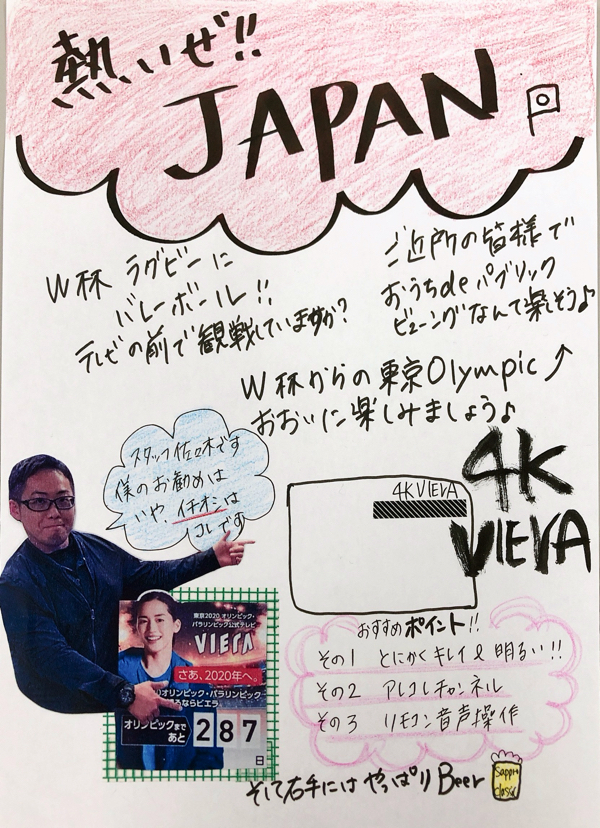 熱いぜ!!
JAPAN
W杯 ラグビーに
バレーボール!!
テレビの前で観戦していますか?
ご近所の皆様で
おうちdeパブリック
ビューイングなんて楽しそう♪
W杯からの東京Olympic↗
おおいに楽しみましょう♪
スタッフ佐々木です
僕のお勧めは
いや、イチオシは
コレです
4K VIERA
4K
VIERA
東京2020 オリンピック・
パラリンピック公式テレビ
VIERA
さあ、2020年へ。
オリンピック・パラリンピック
るならビエラ
オリンピックまで
あと 287日
おすすめポイント!!
その1 とにかくキレイ& 明るい!!
その2 アレコレチャンネル
その3 リモコン音声操作
そして右手には やっぱりBeer
Sapporo
classic